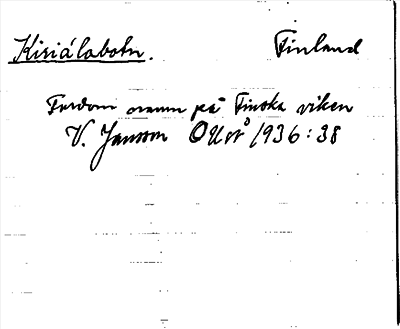 Kiriálabotn. Finland
Fordom namn på Finska viken
V. Jansson OUÅ 1936:38